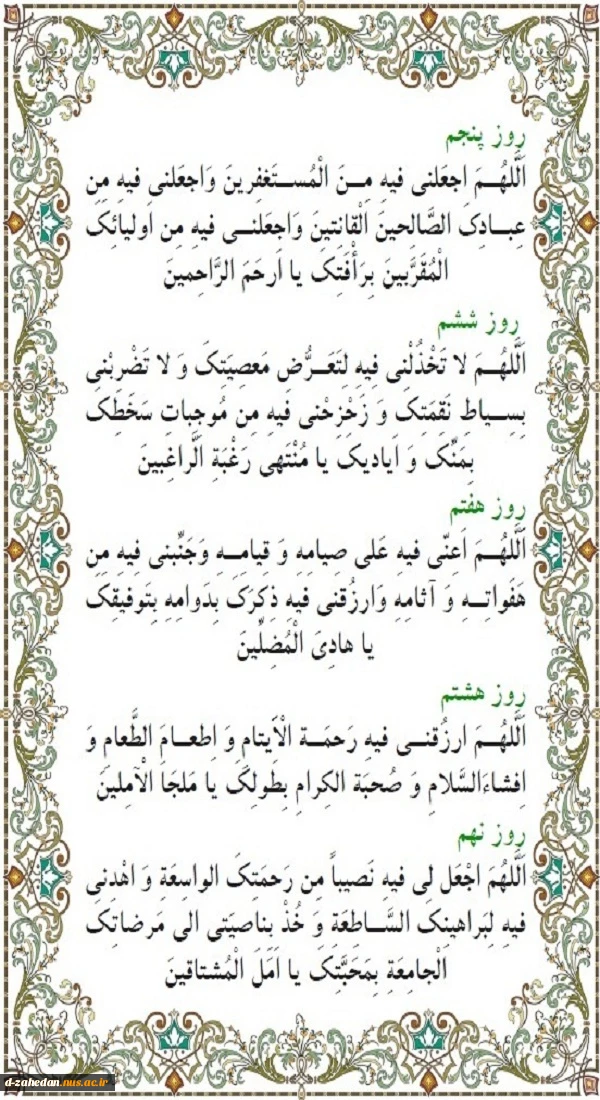 روز پنجم
اَللّهُـمَ اجعَلنی فیهِ مِــنَ الْمُستَـغفِرینَ وَاجعَلنی فیهِ مِن
عِبـادِکَ الصَّالِحینَ اْلقانِتینَ وَاجعَلنــی فیهِ مِن اَولیائِکَ
الْمُقَرَّبینَ بِرَأْفَتِکَ یا اَرحَمَ الرَّاحِمینَ
روز ششم
اَللّهُـمَ لا تَخْذُلْنِی فیهِ لِتَعَـرُّضِ مَعصِیَتِکَ وَ لا تَضْرِبْنی
بِسِیاطِ نَقِمَتِکَ وَ زَحْزِحْنی فیهِ مِن مُوجِباتِ سَخَطِکَ
بِمَنِّکَ وَ اَیادیکَ یا مُنْتَهی رَغْبَةِ الَّراغِبینَ
روز هفتم
اَللّهُـمَ اَعِنّی فیهِ عَلی صِیامِه وَ قِیامِـهِ وَجَنِّبنی فیهِ مِن
هَفَواتِــهِ وَ آثامِهِ وَارزُقنی فیهِ ذِکرَکَ بِدَوامِهِ بِتَوفیقِکَ
یا هادِیَ الْمُضِلّینَ
روز هشتم
اَللّهُــمَ ارزُقنــی فیهِ رَحمَـةَ الْاَیتامِ وَ اِطعــامَ الطَّعامِ وَ
اِفشاءَالسَّلامِ وَ صُحبَةَ الکِرامِ بِطَولِکَ یا مَلجَاَ الْآمِلینَ
روز نهم
اَللّهُمَ اجْعَل لی فیهِ نَصیباً مِن رَحمَتِکَ الواسِعَةِ وَ اهْدنِی
فیهِ لِبَراهینِکَ السَّـاطِعَةِ وَ خُذْ بِناصِیَتی الی مَرضاتِکَ
الْجامِعَةِ بِمَحَبَّتِکَ یا اَمَلَ الْمُشتاقینَ
d-zahedan.nus.ac.ir